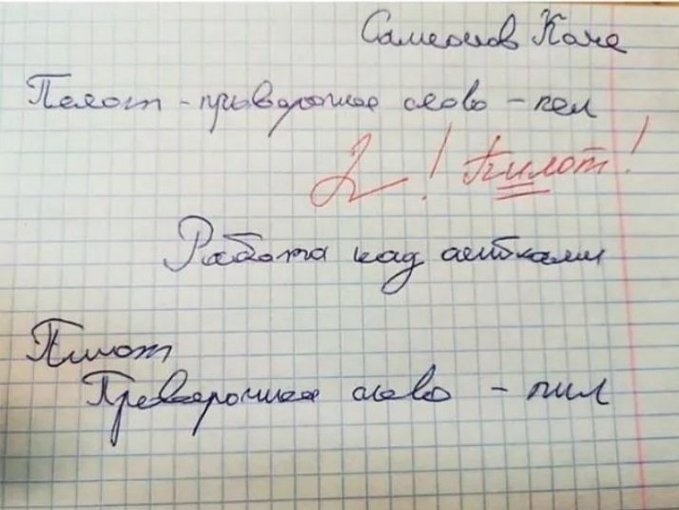 Самсонов Коле
Пелот - прыверочное слово - пел
2! Пилот!
Работа над ошибками
Пилот
Преверочное слово - пил